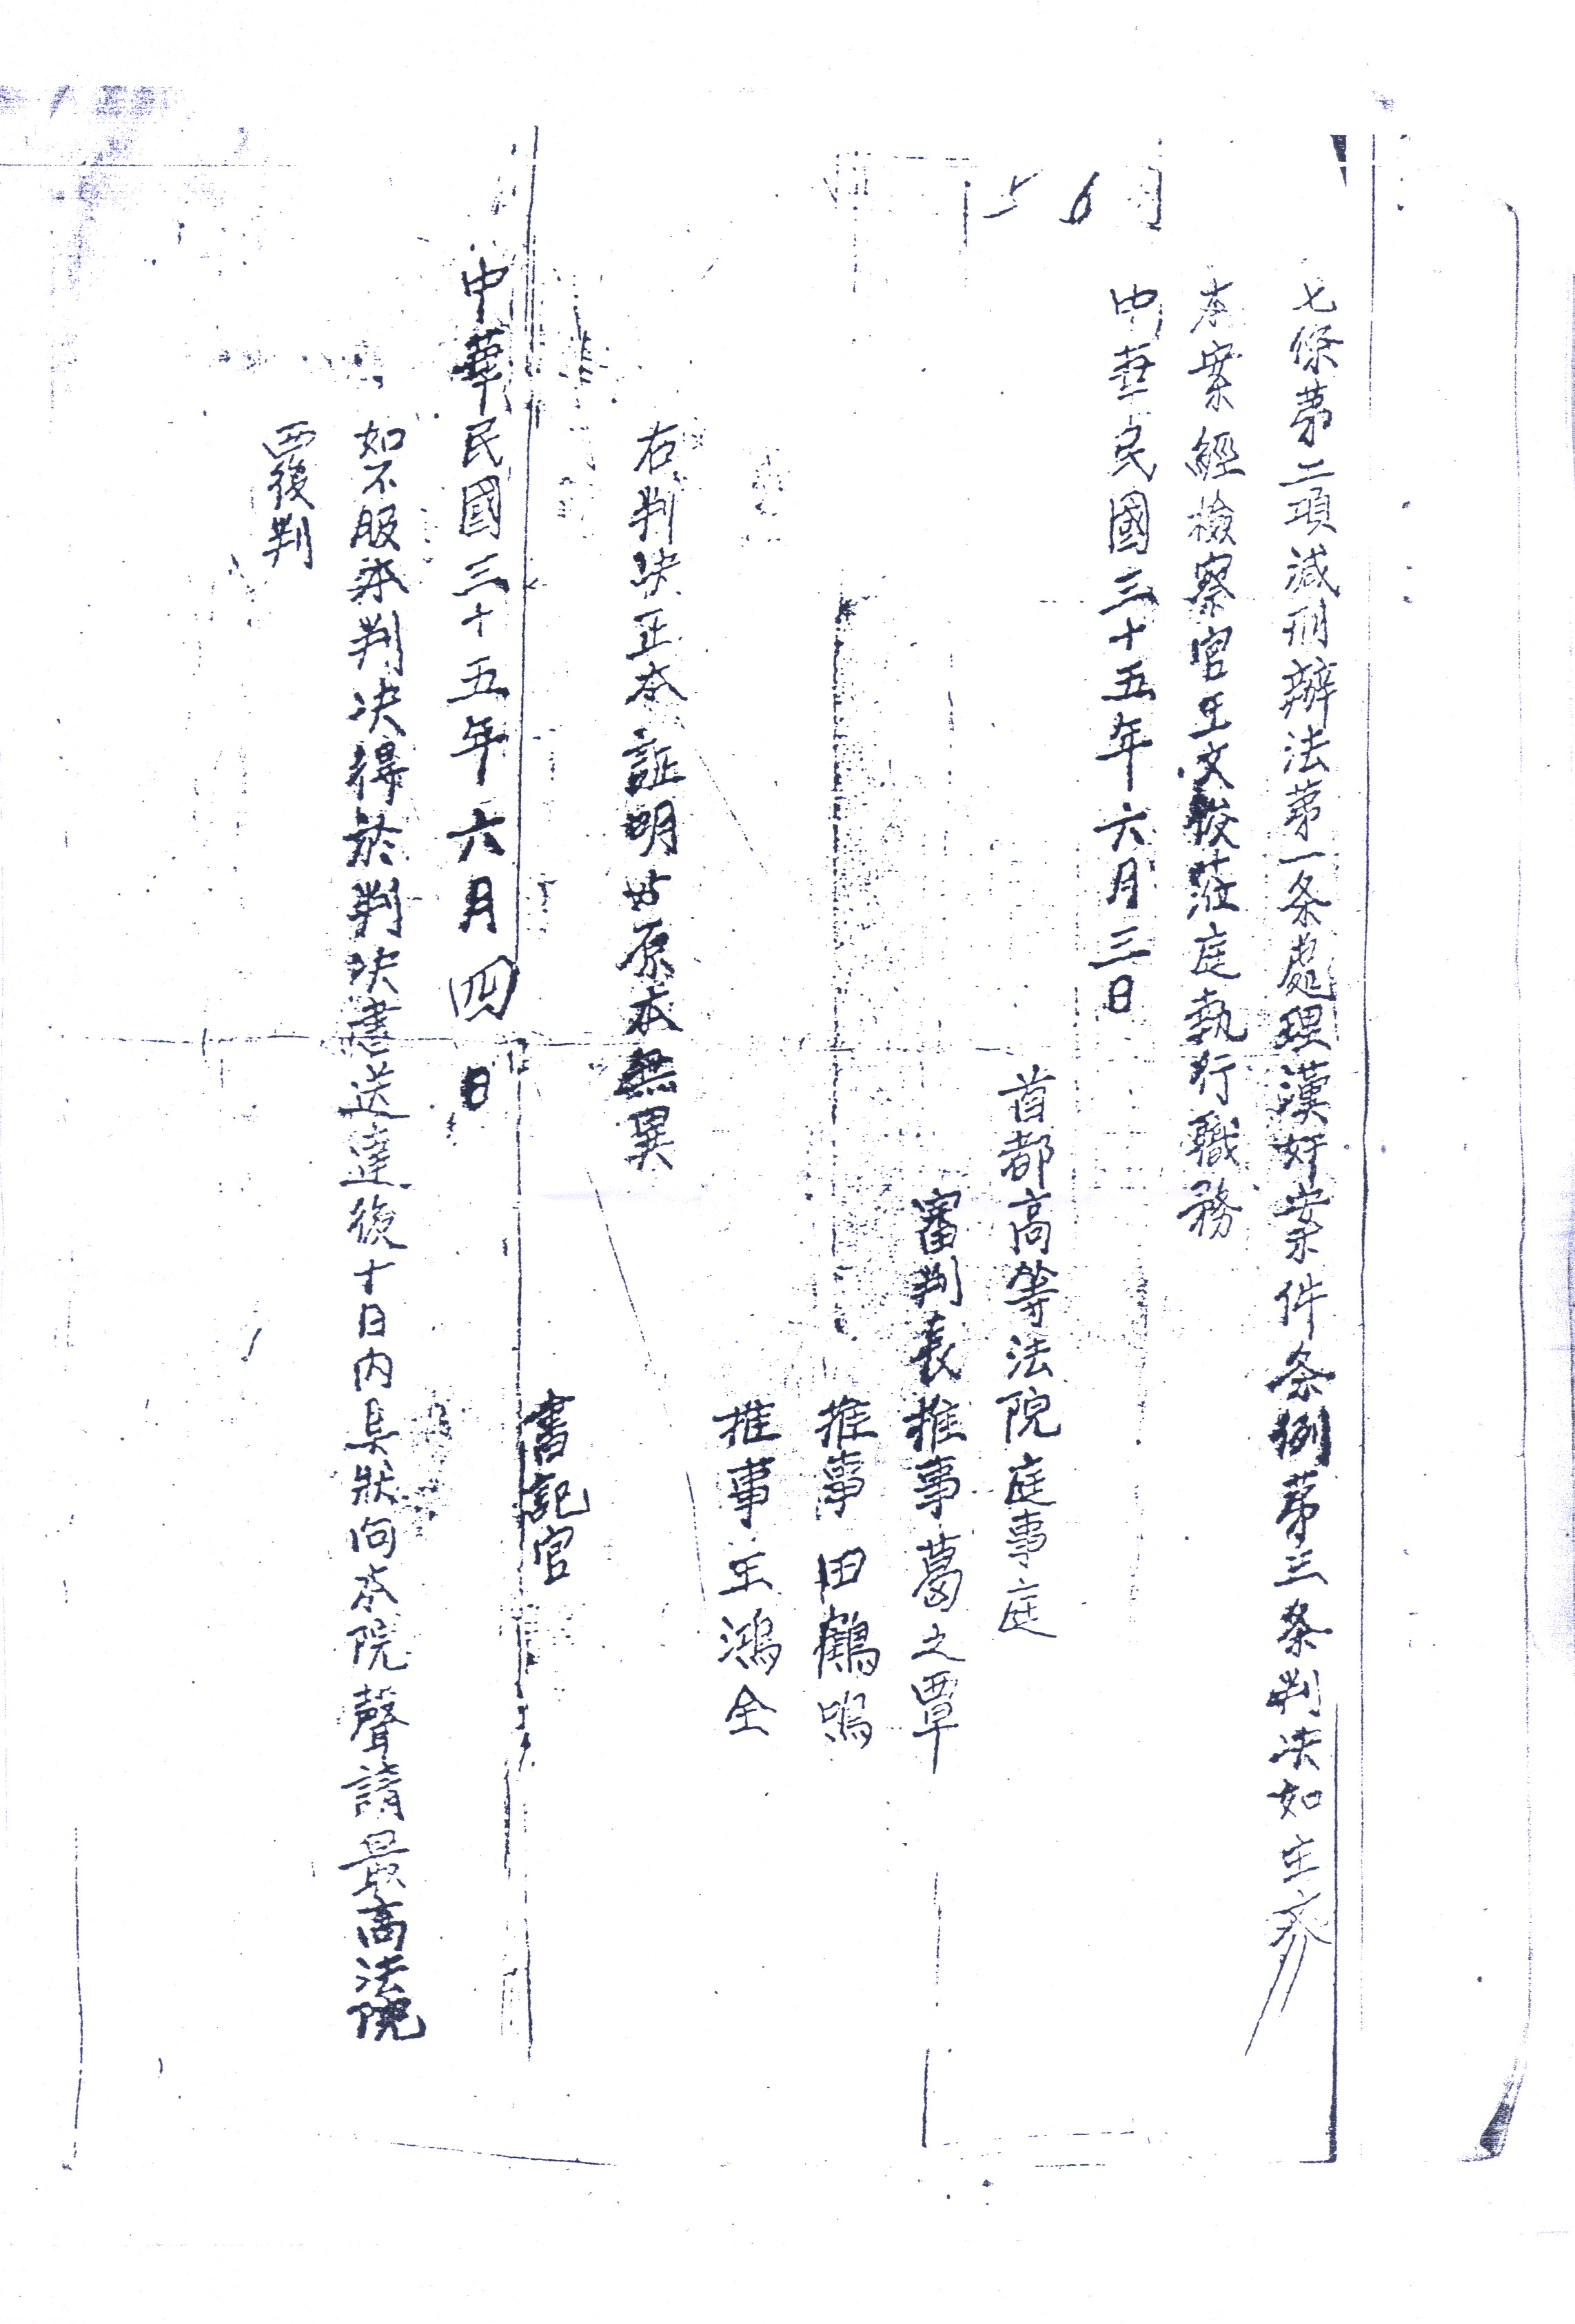 七條第二項減刑辦法第一条處理漢奸案件条例第三条判决如主文
本案經檢察官王文俊蒞庭執行職務
中華民國三十五年六月三日
首都高等法院庭事庭
審判長推事葛之覃
推事田鶴鳴
推事王鴻全
右判决正本証明与原本無異
書記官
中華民國三十五年六月四日
如不服本判决得於判决書送達後十日内具狀向本院聲請最高法院
覆判